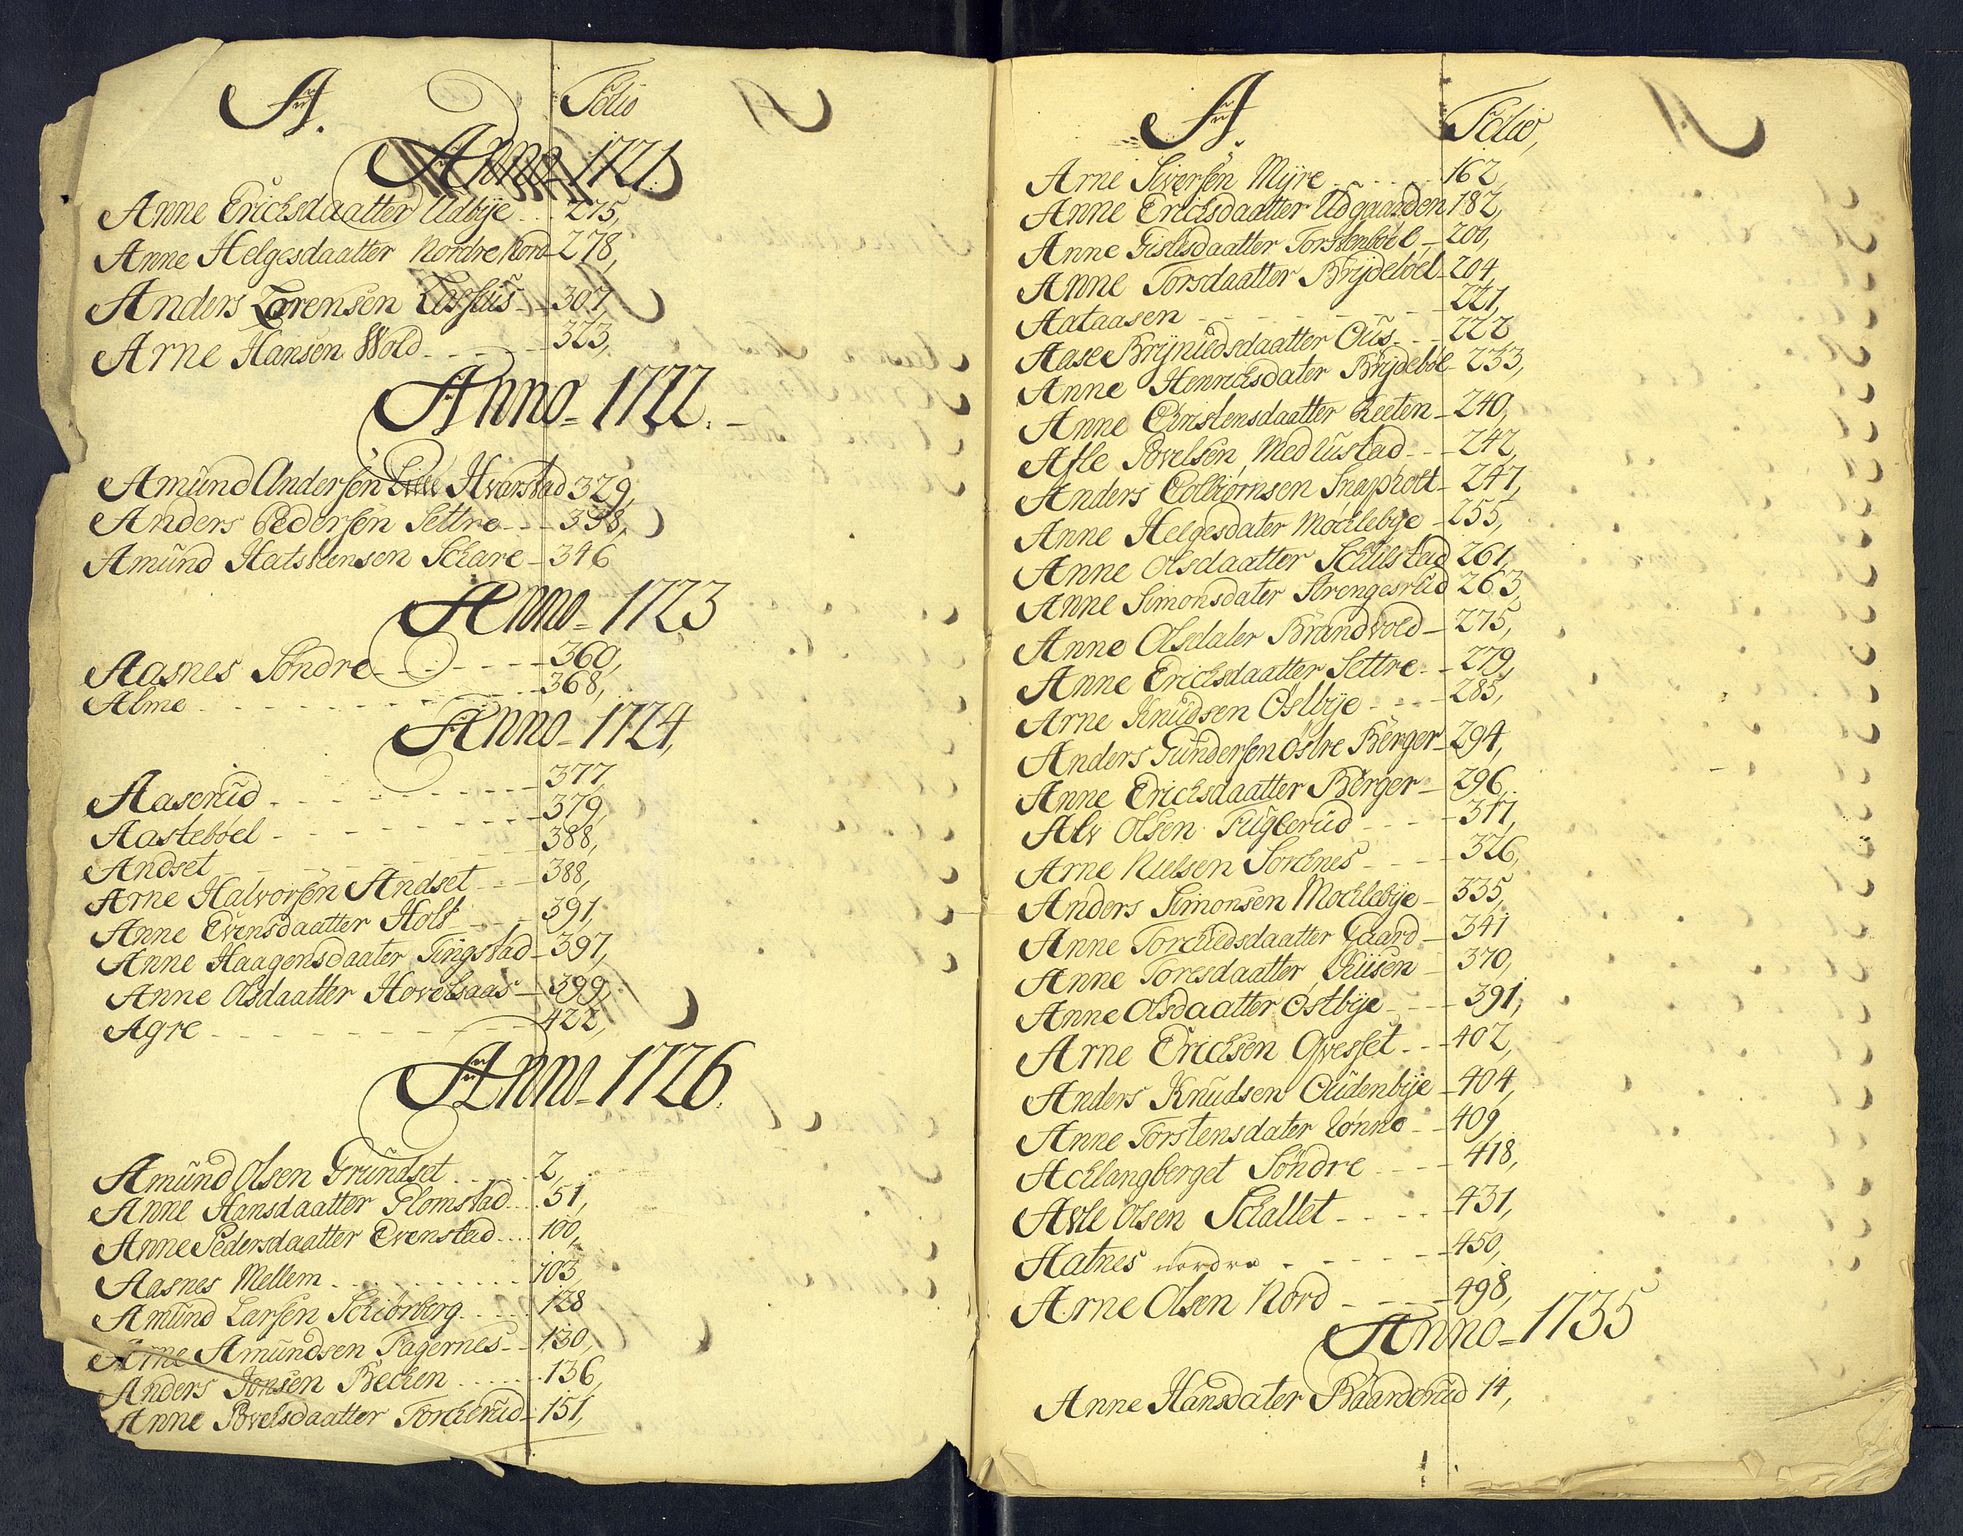 A. Folio
Anno 1721.
Anne Erichsdaatter Udbÿe 275,
Anne Helgesdaatter Nordre Nord 278,
Anders Lorensen 307,
Arne Hansen Wold 323,
Anno 1722.
Amund Andersen Lille Hvarstad 329,
Anders Pedersen Settre 338,
Amund Halstensen Schare 346
Anno 1723
Aasnes Søndre 360,
Alme 368,
Anno 1724,
Aaserud 377,
Aasteboel 379,
Andset 388,
Arne Halvorsen Andset 388,
Anne Evensdaatter Holt 391,
Anne Haagensdaater Tingstad 397,
Anne Olsdaatter Hovelsaas 399,
Agre 422,
Anno 1726.
Amund Olsen Grundset 2,
Anne Hansdaatter Glomstad 51,
Anne Pedersdaatter Evenstad 100,
Aasnes Mellem 103,
Amund Larsen Schiørberg 128
Arne Amundsen Fagernes 130,
Anders Jonsen Bechen 136,
Anne Povelsdaatter Torcherud 151,
A. Folio,
Arne Siversen Mÿre 162,
Anne Erichsdaatter Udgaarden 182,
Anne Gislesdaatter Torstenboel 200,
Anne Torsdaatter Brÿdeboel 204,
Aataasen 221,
Aase Brÿnildsdaatter Ous 222
Anne Henrichsdater Brÿdeboel 233,
Anne Christensdaatter Reeten 240,
Afle Povelsen Medlustad 242,
Anders Colbiørnsen Snaphott 247,
Anne Helgesdater Mochlebÿe 255,
Anne Olsdaatter Schulstad 261,
Anne Simonsdater Strengesrud 263,
Anne Olsdater Brandvold 275,
Anne Erichsdaatter Settre 279,
Arne Knudsen Østbÿe 285,
Anders Gundersen Østre Berger 294,
Anne Erichsdaatter Berger 296,
Alv Olsen Fuglerud 317,
Arne Nielsen Sorchnes 326,
Anders Simonsen Mochlebÿe 335,
Anne Torchildsdaatter Gaard 341
Anne Toresdaatter Riisen 370,
Anne Olsdaatter Østbÿe 391,
Arne Erichsen Ofvesset 402,
Anders Knudsen Oudenbÿe 404,
Anne Torstensdater Lønne 409,
Achlangberget Søndre 418,
Avle Olsen Schallet 431,
Aatnes nordre 450,
Arne Olsen Nord 498,
Anno 1735
Anne Hansdater Baarderud 14,